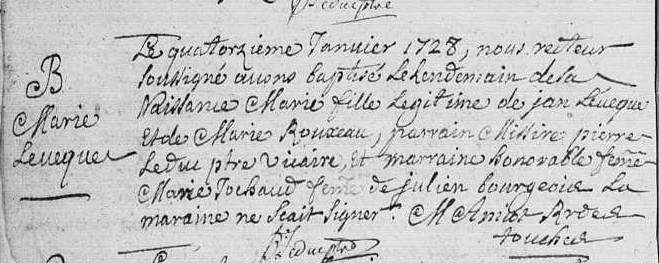 B
Marie
Leveque
Le quatorzieme Janvier 1728, nous recteur
soussigné avons baptisé Le Lendemain de sa
Naissance Marie fille Legitime de jan Leveque
Et de Marie Rouxeau, parrain Missire pierre
Leduc ptre vicaire, Et marraine honorable feme
Marie Jochaud feme de julien bourgeois La
maraine ne Scait Signer.
Leduc ptre